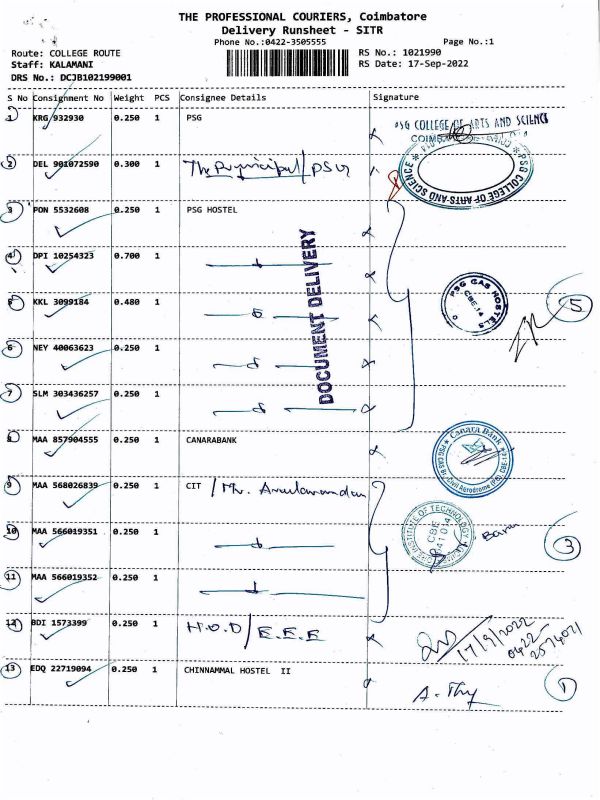 THE PROFESSIONAL COURIERS, Coimbatore
Delivery Runsheet - SITR
Phone No.:0422-3505555 Page No.:1
Route: COLLEGE ROUTE RS No.: 1021990
Staff: KALAMANI RS Date: 17-Sep-2022
DRS No.: DCJB102199001
S No Consignment No Weight PCS Consignee Details Signature
1 KRG 932930 0.250 1 PSG
PSG COLLEGE OF ARTS AND SCIENCE
2 DEL 901072590 0.300 1 The Principal / PSG
PSG COLLEGE OF ARTS AND SCIENCE
3 PON 5532608 0.250 1 PSG HOSTEL
4 DPI 10254323 0.700 1
DOCUMENT DELIVERY
PSG CAS HOSTELS
CBE-14
5 KKL 3099184 0.480 1
5
6 NEY 40063623 0.250 1
7 SLM 303436257 0.250 1
8 MAA 857904555 0.250 1 CANARABANK
Canara Bank
9 MAA 568026839 0.250 1 CIT / Mr.
INSTITUTE OF TECHNOLOGY
CBE
641 014
10 MAA 566019351 0.250 1
3
11 MAA 566019352 0.250 1
12 BDI 1573399 0.250 1 H.O.D / E.E.E
17/9/2022
0422-
2574071
13 EDQ 22719094 0.250 1 CHINNAMMAL HOSTEL II
1